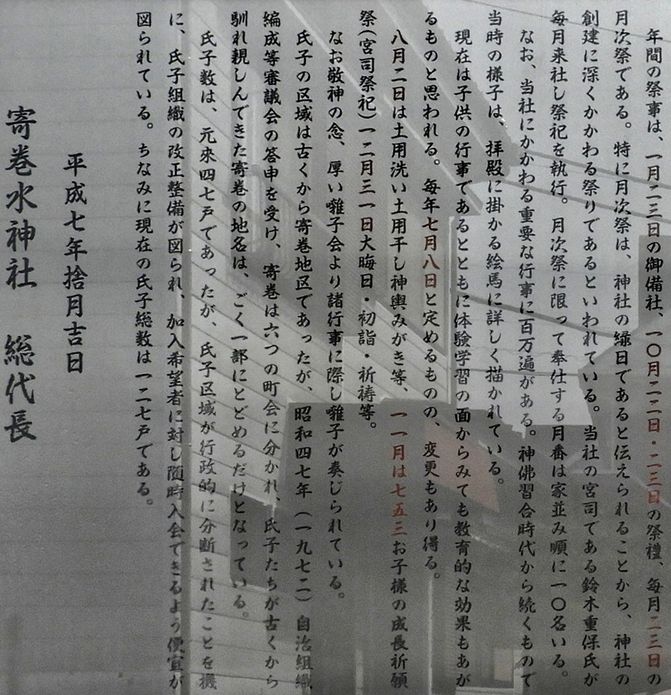 年間の祭事は、一月二三日の御備社、一〇月二二日・二三日の祭禮、毎月二三日の
月次祭である。特に月次祭は、神社の縁日であると伝えられることから、神社の
創建に深くかかわる祭りであるといわれている。当社の宮司である鈴木重保氏が
毎月来社し祭祀を執行。月次祭に限って奉仕する月番は家並み順に一〇名いる。
なお、当社にかかわる重要な行事に百万遍がある。神佛習合時代から続くもので
当時の様子は、拝殿に掛かる絵馬に詳しく描かれている。
現在は子供の行事であるとともに体験学習の面からみても教育的な効果もあが
るものと思われる。毎年七月八日と定めるものの、変更もあり得る。
八月二日は土用洗い土用干し神輿みがき等、一一月は七五三お子様の成長祈願
祭(宮司祭祀)一二月三一日大晦日・初詣・祈祷等。
なお敬神の念、厚い囃子会より諸行事に際し囃子が奏じられている。
氏子の区域は古くから寄巻地区であったが、昭和四七年(一九七二)自治組織
編成等審議会の答申を受け、寄巻は六つの町会に分かれ、氏子たちが古くから
馴れ親しんできた寄巻の地名は、ごく一部にとどめるだけとなっている。
氏子数は、元来四七戸であったが、氏子区域が行政的に分断されたことを機
に、氏子組織の改正整備が図られ、加入希望者に対し随時入会できるよう便宜が
図られている。ちなみに現在の氏子総数は一二七戸である。
平成七年捨月吉日
寄巻水神社 総代長